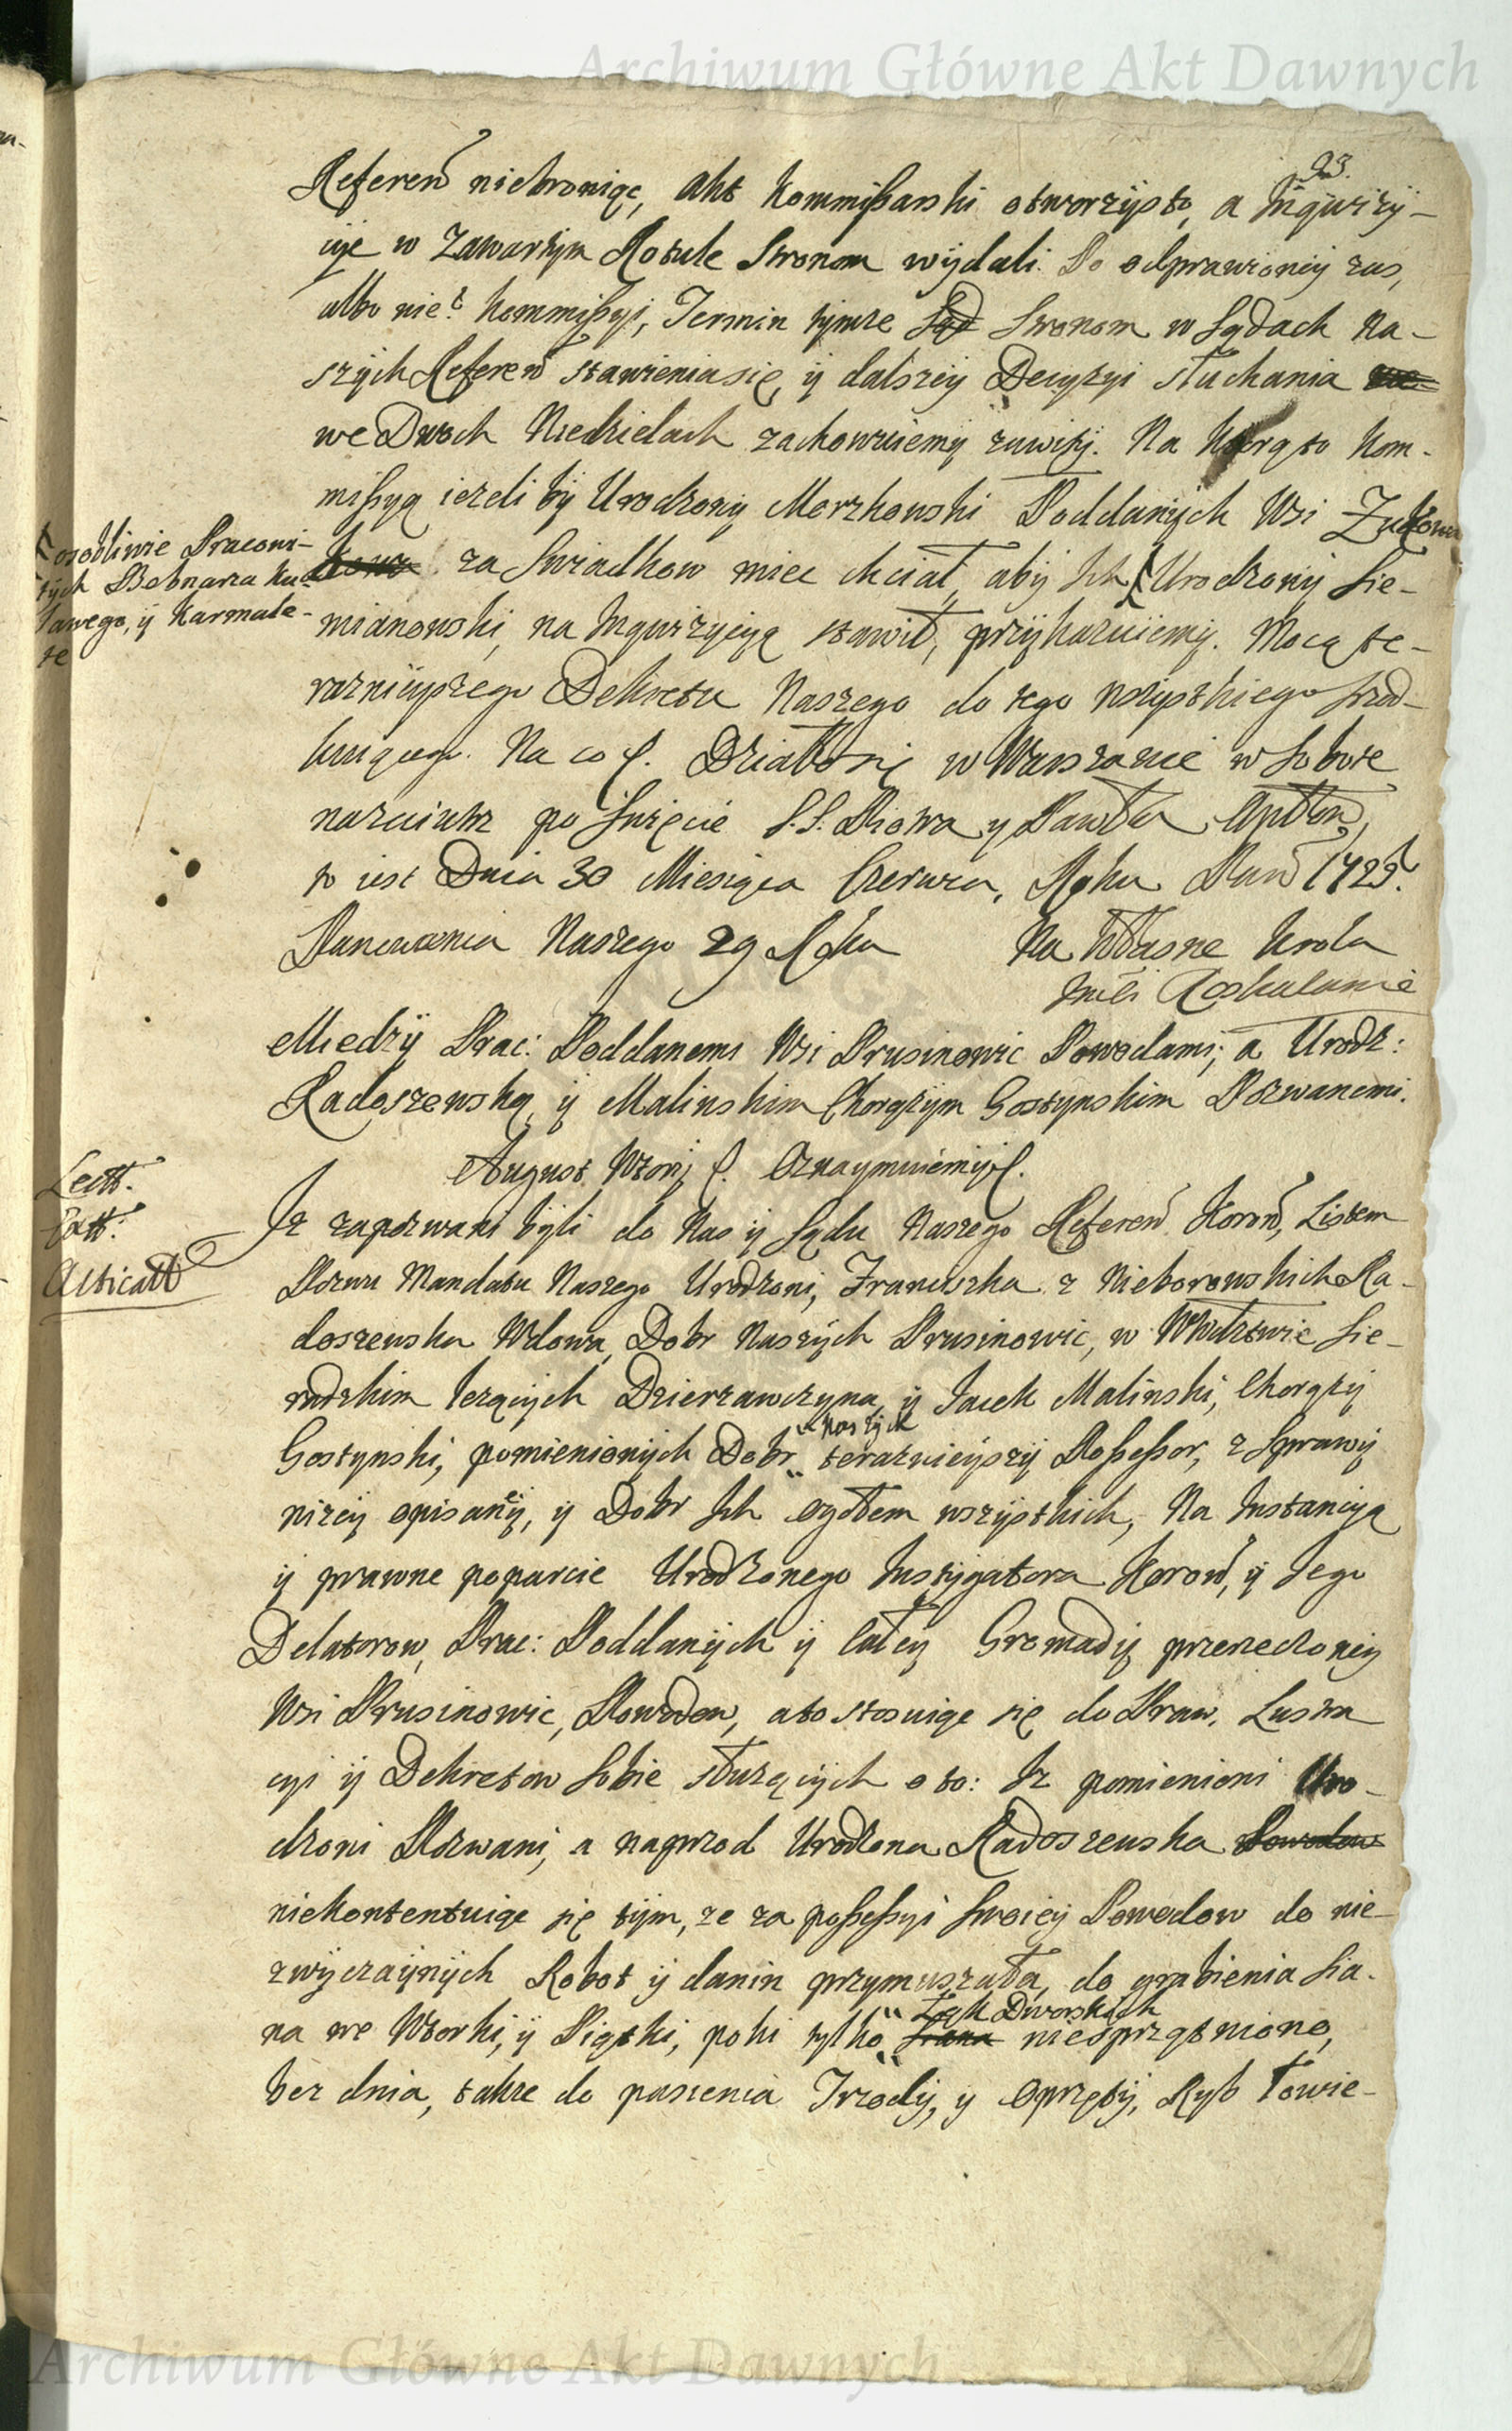 Archiwum Główne Akt Dawnych
23.
Referen̄ niebroniąc, akt Kommissarski otworzysto, a Inquizy-
cye w zawartym Rotule Stronom wydali. Po odprawioney zas,
albo nie? Kommissyi, Termin tymze Sąd Stronom w Sądach Na-
szych Referen̄ stawienia się, y dalszey Decyzyi słuchania
we Dwoch Niedzielach zachowuiemy zawity. Na ktorą to Kom-
missyą iezeli by Urodzony Morzkowski Poddanych Wsi
za Swiadkow miec chciał, aby Ich Urodzony Sie-
mianowski, na Inquizycyą stawił, przykazuiemy. Mocą te-
raznieyszego Dekretu Naszego do tego wszystkiego srzod-
kuiącego. Na co &. Działo się w Warszawie w Sobotę
nazaiutrz po Swięcie S.S. Piotra y Pawła Aptłow,
to iest Dnia 30 Miesiąca Czerwca, Roku Pan̄ 1725.
Panowania Naszego 29 Roku Na Własne Krola
Imci Roskazanie
osobliwie Pracowi-
tych Bobnarza Ku-
ławego, y Karmale-
te
Między Prac: Poddanemi Wsi Prusinowic Powodami, a Urodz:
Radoszewską, y Malinskim Chorązym Gostynskim Pozwanemi.
August Wtory &. Oznaymuiemy &.
Lectt.
Extt:
Alticatt
Iz zapozwani byli do Nas y Sądu Naszego Referen̄ Koron̄, Listem
Pozwu Mandatu Naszego Urodzoni, Franciszka z Nieborowskich Ra-
doszewska Wdowa, Dobr Naszych Prusinowic, w Wwdztwie Sie-
radzkim lezących Dzierzawczyna, y Jacek Malinski, Chorązy
Gostynski, pomienionych Dobr Naszych teraznieyszy Possessor, z Sprawy
nizey opisaney, y Dobr Ich ogołem wszystkich, Na Instancyą
y prawne poparcie Urodzonego Instygatora Koron̄, y Iego
Delatorow, Prac: Poddanych y całey Gromady przerzeczoney
Wsi Prusinowic, Powodow, a to stosuiąc się do Praw, Lustra
cyi y Dekretow Sobie słuzących o to: Iz pomienieni Uro-
dzoni Pozwani, a naprzod Urodzona Radoszewska Powodow
niekontentuiąc się tym, ze za possessyi swoiey Powodow do nie-
zwyczaynych Robot y danin przymuszała, do grabienia Sia-
na we Wtorki, y Piątki, poki tylko Siana Łąk Dworskich niesprzątniono,
bez dnia, takze do pasienia Trzody, y Oprzęty, Ryb łowie-
Archiwum Główne Akt Dawnych